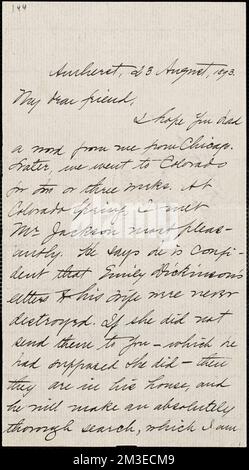 144
Amherst, 23 August, 1893.
My dear friend,
I hope you had
a word from me from Chicago.
Later, we went to Colorado
for two or three weeks. At
Colorado Springs I met
Mr Jackson most pleas-
antly. He says he is confi-
dent that Emily Dickinson's
letters to his wife were never
destroyed. If she did not
send them to you – which he
had supposed she did – then
they are in his house, and
he will make an absolutely
thorough search, which I am
alamy
Image ID: 2M3ECM9
www.alamy.com